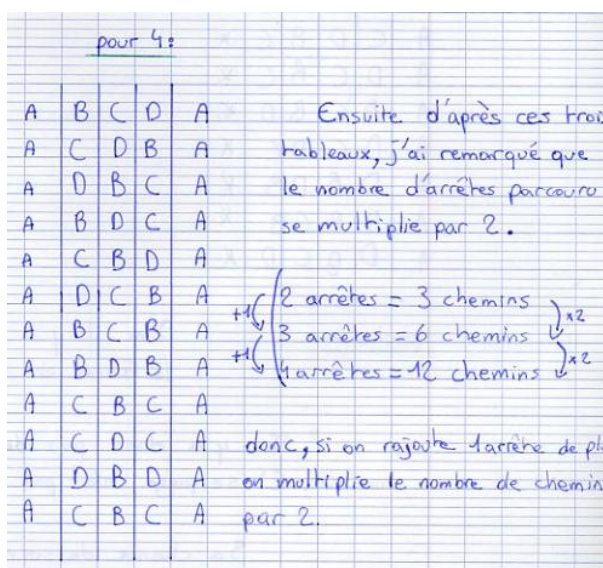 pour 4 :
A B C D A
A C D B A
A D B C A
A B D C A
A C B D A
A D C B A
A B C B A
A B D B A
A C B C A
A C D C A
A D B D A
A C B C A
Ensuite d'après ces trois
tableaux, j'ai remarqué que
le nombre d'arrêtes parcouru
se multiplie par 2.
2 arrêtes = 3 chemins
+1 x2
3 arrêtes = 6 chemins
+1 x2
4 arrêtes = 12 chemins
donc, si on rajoute 1 arrête de pl
on multiplie le nombre de chemin
par 2.